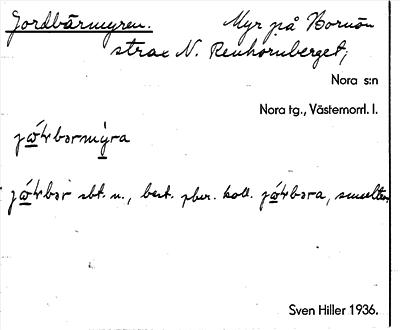 Jordbärmyren. Myr på Bornön
strax N. Renhornberget;
Nora s:n
Nora tg., Västernorrl. l.
jώʈbərmỳra
jώʈbər sbt. n., best. plur. koll. jώʈbəra, smultron
Sven Hiller 1936.